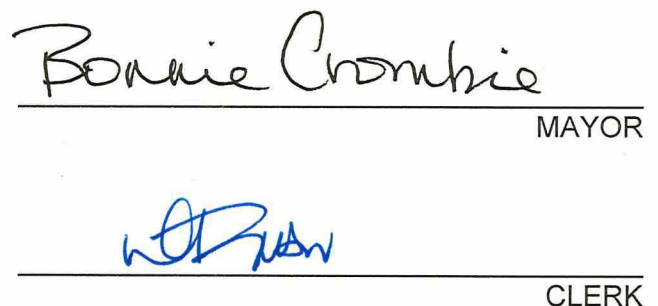 Bonnie Crombie
MAYOR
CLERK